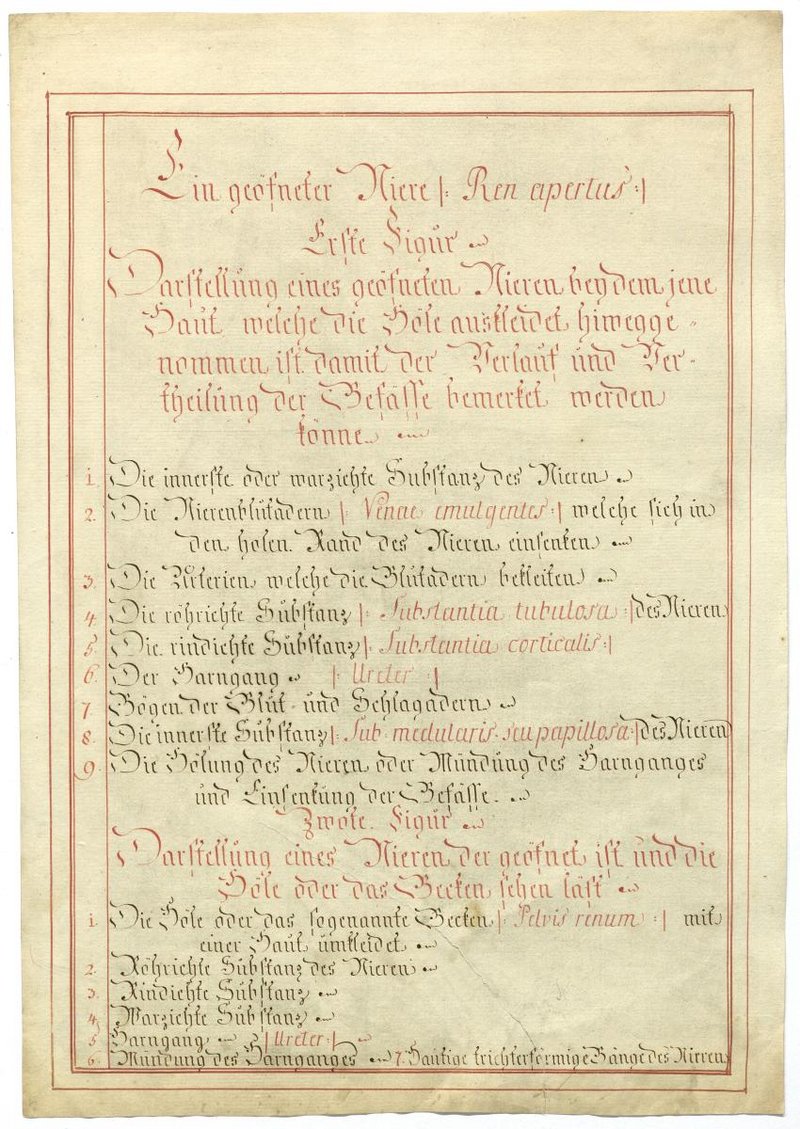 Ein geöfneter Niere |: Ren apertus :|
Erste Figur
Darstellung eines geöfneten Nieren bey dem jene
Haut welche die Höle auskleidet hinwegge-
nommen ist damit der Verlauf und Ver-
theilung der Gefässe bemerket werden
könne.
1. Die innerste oder warzichte Substanz des Nieren
2. Die Nierenblutadern |: Venae emulgentes :| welche sich in
den holen Rand des Nieren einsenken
3. Die Arterien welche die Blutadern bekleiten
4. Die röhrichte Substanz |: Substantia tubulosa :| des Nieren
5. Die rindichte Substanz |: Substantia corticalis :|
6. Der Harngang |: Ureter :|
7. Bögen der Blut- und Schlagadern
8. Die innerste Substanz |: Sub: medularis seu papillosa :| des Nieren
9. Die Hölung des Nieren oder Mündung des Harnganges
und Einsenkung der Gefässe.
Zwote Figur
Darstellung eines Nieren der geöfnet ist und die
Höle oder das Becken sehen läst
1. Die Höle oder das sogenannte Becken |: Pelvis renum :| mit
einer Haut umkleidet
2. Röhrichte Substanz des Nieren
3. Rindichte Substanz
4. Warzichte Substanz
5 Harngang |: Ureter :|
6. Mündung des Harnganges 7. Häutige trichterförmige Gänge des Nieren